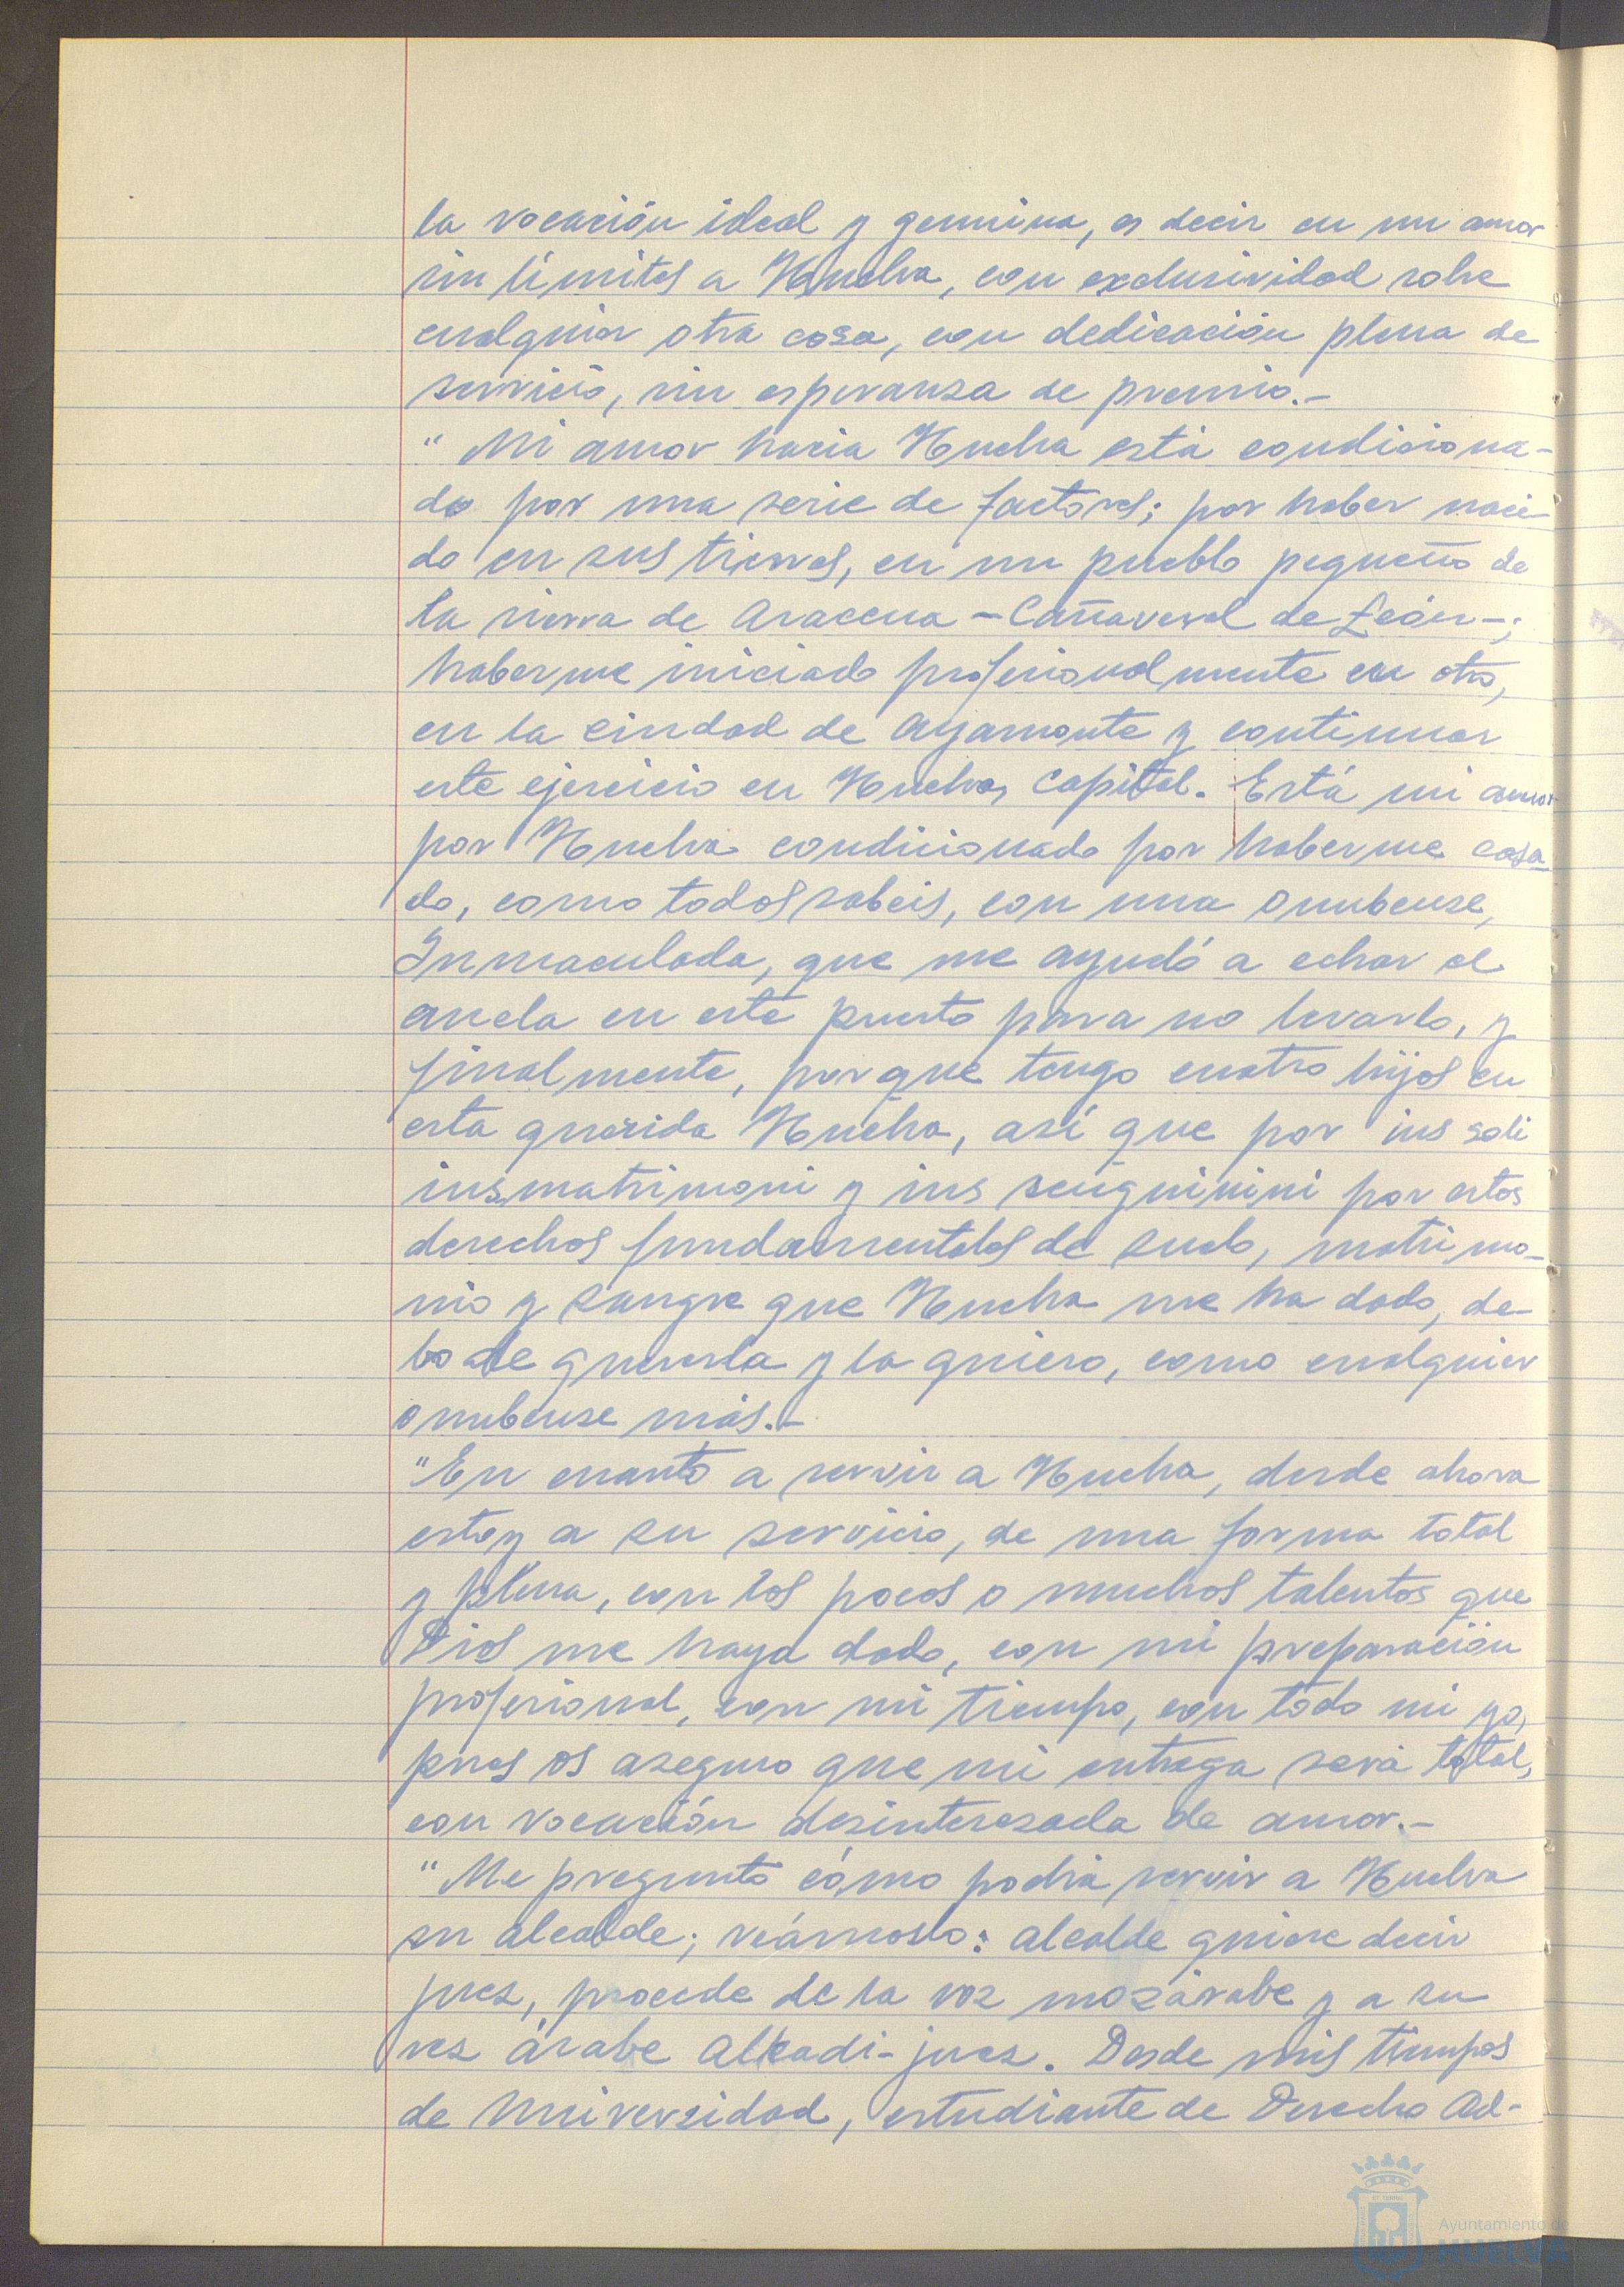 la vocación ideal y genuina, es decir en un amor
sin límites a Huelva, con exclusividad sobre
cualquier otra cosa, con dedicación plena de
servicio, sin esperanza de premio.-
" Mi amor hacia Huelva está condiciona-
do por una serie de factores; por haber naci-
do en sus tierras, en un pueblo pequeño de
la sierra de Aracena - Cañaveral de León -;
haberme iniciado profesionalmente en otro,
en la ciudad de Ayamonte y continuar
este ejercicio en Huelva, capital. Está mi amor
por Huelva condicionado por haberme casa-
do, como todos sabeis, con una onubense,
Inmaculada, que me ayudó a echar el
ancla en este puerto para no levarlo, y
finalmente, porque tengo cuatro hijos en
esta querida Huelva, así que por ius soli
ius matrimoni y ius senguinini por estos
derechos fundamentales de suelo, matrimo-
nio y sangre que Huelva me ha dado, de-
bo de quererla y la quiero, como cualquier
onubense más.-
"En cuanto a servir a Huelva, desde ahora
estoy a su servicio, de una forma total
y plena, con los pocos o muchos talentos que
Dios me haya dado, con mi preparación
profesional, con mi tiempo, con todo mi yo,
pues os aseguro que mi entrega será total,
con vocación desinteresada de amor.-
"Me pregunto cómo podría servir a Huelva
su alcalde; veámoslo: alcalde quiere decir
juez, procede de la voz mozárabe y a su
vez árabe Alkadi - juez. Desde mis tiempos
de Universidad, estudiante de Derecho Ad-
Ayuntamiento de
HUELVA